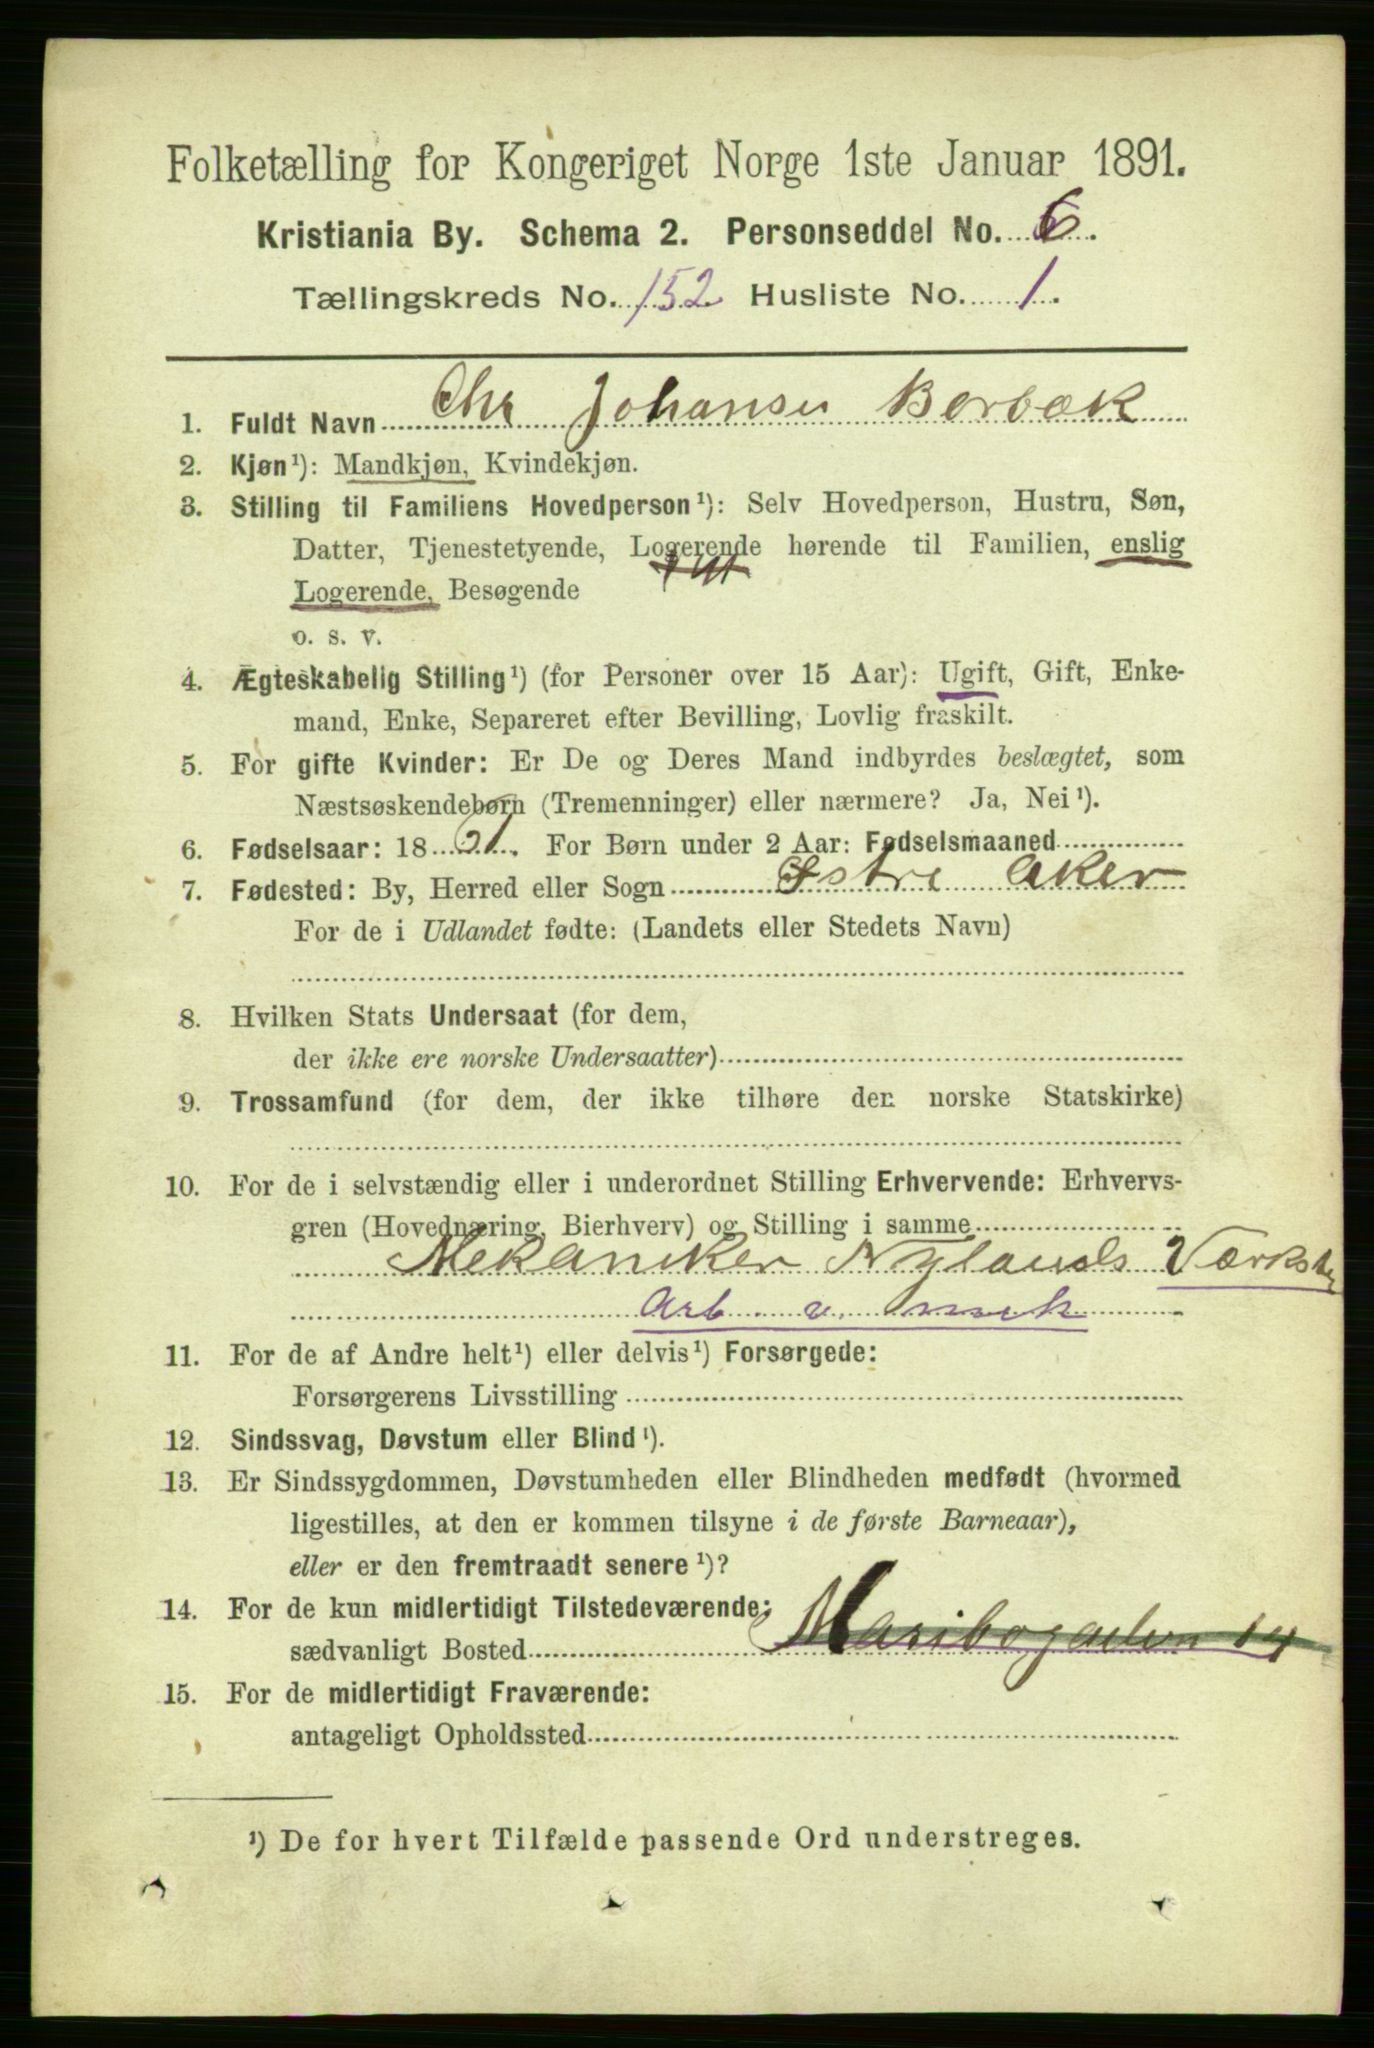 Folketælling for Kongeriget Norge 1ste Januar 1891.
Kristiania By. Schema 2. Personseddel No. 6.
Tællingskreds No. 152 Husliste No. 1.
1. Fuldt Navn Chr Johansen Berbæk
2. Kjøn¹): Mandkjøn, Kvindekjøn.
3. Stilling til Familiens Hovedperson¹): Selv Hovedperson, Hustru, Søn,
Datter, Tjenestetyende, Logerende hørende til Familien, enslig
Logerende, Besøgende
o. s. v.
4. Ægteskabelig Stilling¹) (for Personer over 15 Aar): Ugift, Gift, Enke-
mand, Enke, Separeret efter Bevilling, Lovlig fraskilt.
5. For gifte Kvinder: Er De og Deres Mand indbyrdes beslægtet, som
Næstsøskendebørn (Tremenninger) eller nærmere? Ja, Nei¹).
6. Fødselsaar: 18 61. For Børn under 2 Aar: Fødselsmaaned
7. Fødested: By, Herred eller Sogn Østre Aker
For de i Udlandet fødte: (Landets eller Stedets Navn)
8. Hvilken Stats Undersaat (for dem,
der ikke ere norske Undersaatter)
9. Trossamfund (for dem, der ikke tilhøre den norske Statskirke)
10. For de i selvstændig eller i underordnet Stilling Erhvervende: Erhvervs-
gren (Hovednæring, Bierhverv) og Stilling i samme
Mekaniker Nylands Værksted
Arb. v. mek
11. For de af Andre helt¹) eller delvis¹) Forsørgede:
Forsørgerens Livsstilling
12. Sindssvag, Døvstum eller Blind¹).
13. Er Sindssygdommen, Døvstumheden eller Blindheden medfødt (hvormed
ligestilles, at den er kommen tilsyne i de første Barneaar),
eller er den fremtraadt senere¹)?
14. For de kun midlertidigt Tilstedeværende:
sædvanligt Bosted Maribogaden 14
15. For de midlertidigt Fraværende:
antageligt Opholdssted
¹) De for hvert Tilfælde passende Ord understreges.